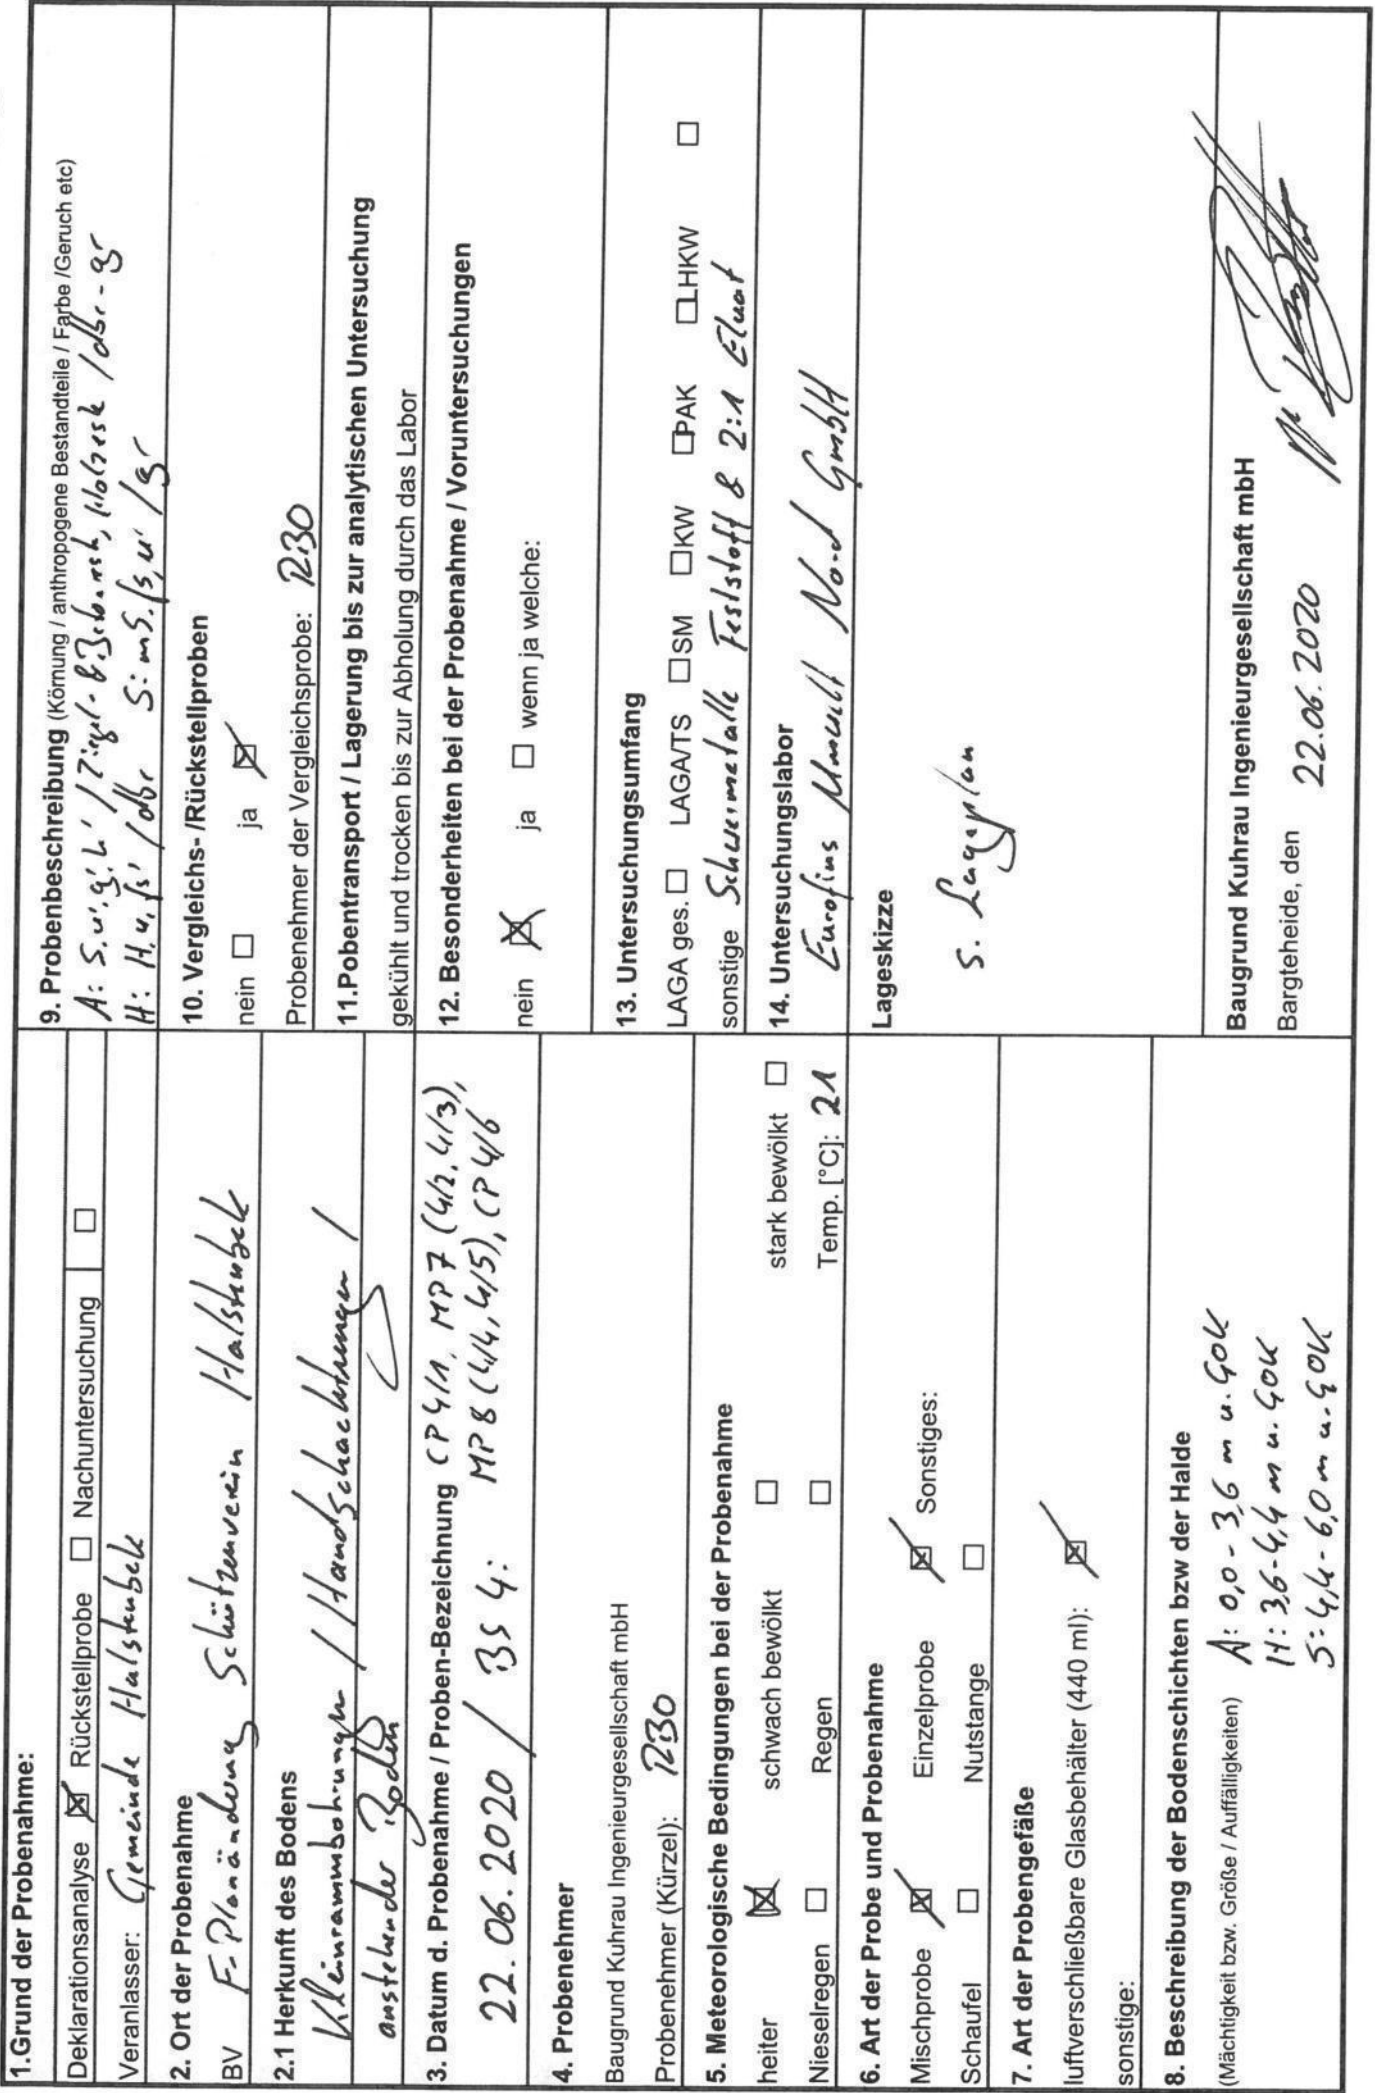 1.Grund der Probenahme:
Deklarationsanalyse ☒ Rückstellprobe ☐ Nachuntersuchung ☐
Veranlasser: Gemeinde Halstenbek
2. Ort der Probenahme
BV F-Planänderung Schützenverein Halstenbek
2.1 Herkunft des Bodens
Kleinrammbohrungen / Handschachtungen /
anstehender Boden
3. Datum d. Probenahme / Proben-Bezeichnung CP 4/1, MP7 (4/2, 4/3),
22.06.2020 / BS 4: MP8 (4/4, 4/5), CP 4/6
4. Probenehmer
Baugrund Kuhrau Ingenieurgesellschaft mbH
Probenehmer (Kürzel):
5. Meteorologische Bedingungen bei der Probenahme
heiter ☒ schwach bewölkt ☐ stark bewölkt ☐
Nieselregen ☐ Regen ☐ Temp. [°C]: 21
6. Art der Probe und Probenahme
Mischprobe ☒ Einzelprobe ☒ Sonstiges:
Schaufel ☐ Nutstange ☐
7. Art der Probengefäße
luftverschließbare Glasbehälter (440 ml): ☒
sonstige:
8. Beschreibung der Bodenschichten bzw der Halde
(Mächtigkeit bzw. Größe / Auffälligkeiten) A: 0,0 - 3,6 m u. GOK
H: 3,6 - 4,4 m u. GOK
S: 4,4 - 6,0 m u. GOK
9. Probenbeschreibung (Körnung / anthropogene Bestandteile / Farbe /Geruch etc)
A: S, u', g', h' / Ziegel- & Holzreste / dbr - gr
H: H, u, fs' / dbr S: mS, fs, u' / gr
10. Vergleichs- /Rückstellproben
nein ☐ ja ☒
Probenehmer der Vergleichsprobe:
11.Pobentransport / Lagerung bis zur analytischen Untersuchung
gekühlt und trocken bis zur Abholung durch das Labor
12. Besonderheiten bei der Probenahme / Voruntersuchungen
nein ☒ ja ☐ wenn ja welche:
13. Untersuchungsumfang
LAGA ges. ☐ LAGA/TS ☐ SM ☐ KW ☐ PAK ☐ LHKW ☐
sonstige Schwermetalle Feststoff & 2:1 Eluat
14. Untersuchungslabor
Eurofins Umwelt Nord GmbH
Lageskizze
s. Lageplan
Baugrund Kuhrau Ingenieurgesellschaft mbH
Bargteheide, den 22.06.2020